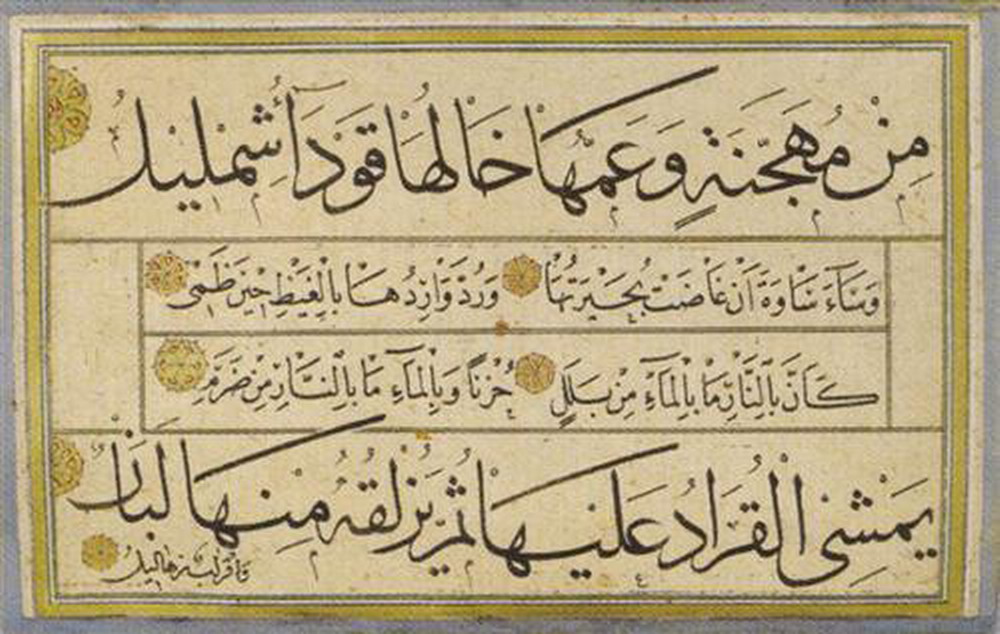 مِنْ مُهَجَّنَةٍ وَعَمُّهَا خَالُهَا قَوْدَاءُ شِمْلِيلُ
وَسَاءَ سَاوَةَ اَنْ غَاضَتْ بُحَيْرَتُهَا وَرُدَّ وَارِدُهَا بِالْغَيْظِ حِينَ ظَمِى
كَاَنَّ بِالنَّارِ مَا بِالْمَاءِ مِنْ بَلَلٍ حُزْنًا وَبِالْمَاءِ مَا بِالنَّارِ مِنْ ضَرَمِ
يَمْشِى الْقُرَادُ عَلَيْهَا ثُمَّ يُزْلِقُهُ مِنْهَا لَبَانٌ
وَاَقْرَابٌ زَهَالِيلُ